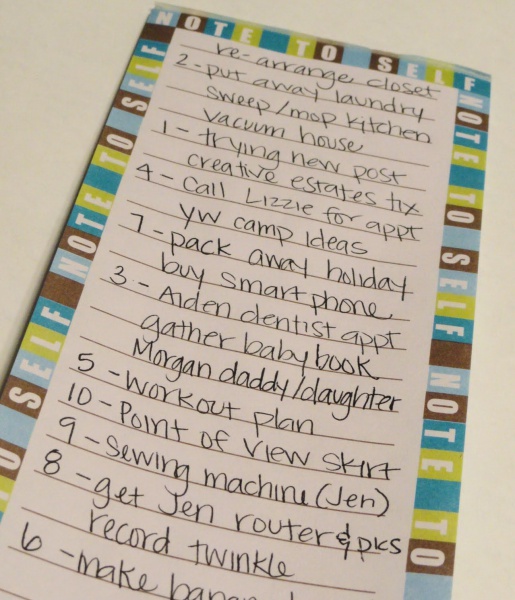 NOTE TO SELF
re-arrange closet
2 - put away laundry
sweep/mop kitchen
vacuum house
1 - trying new post
creative estates tix
4 - call Lizzie for appt
YW camp Ideas
7 - pack away holiday
buy smart phone
3 - Aiden dentist appt
gather baby book
Morgan daddy/daughter
5 - workout plan
10 - Point of View skirt
9 - sewing machine (Jen)
8 - get Jen router & pks
record twinkle
6 - make
NOTE TO SELF NOTE TO
NOTE TO SELF NOTE TO SELF